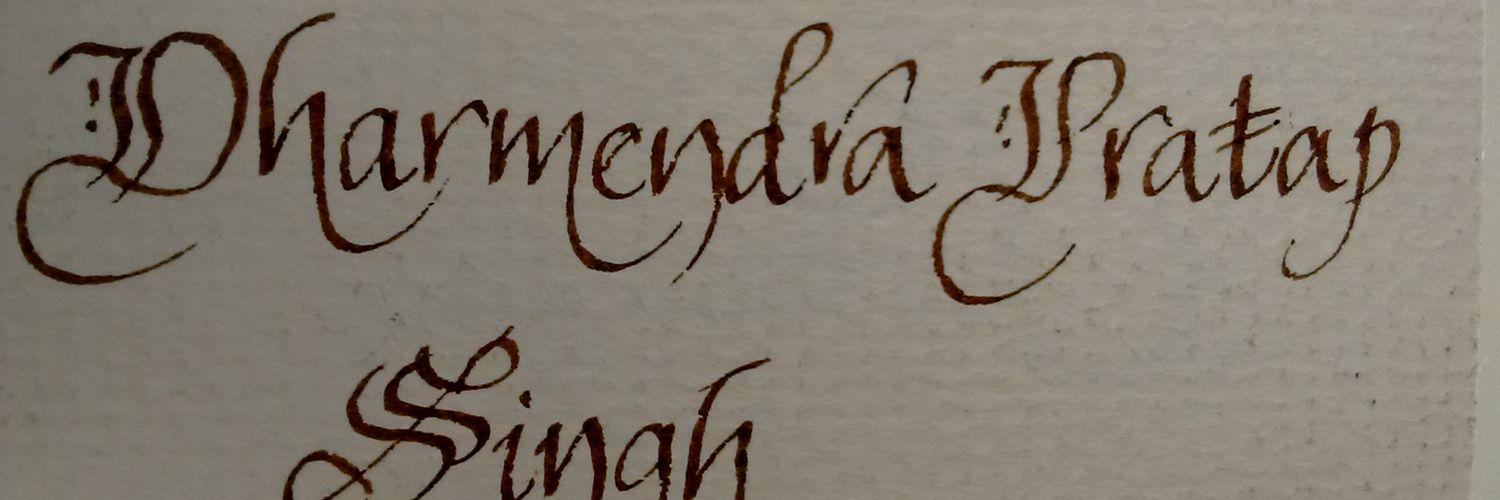 Dharmendra Pratap
Singh